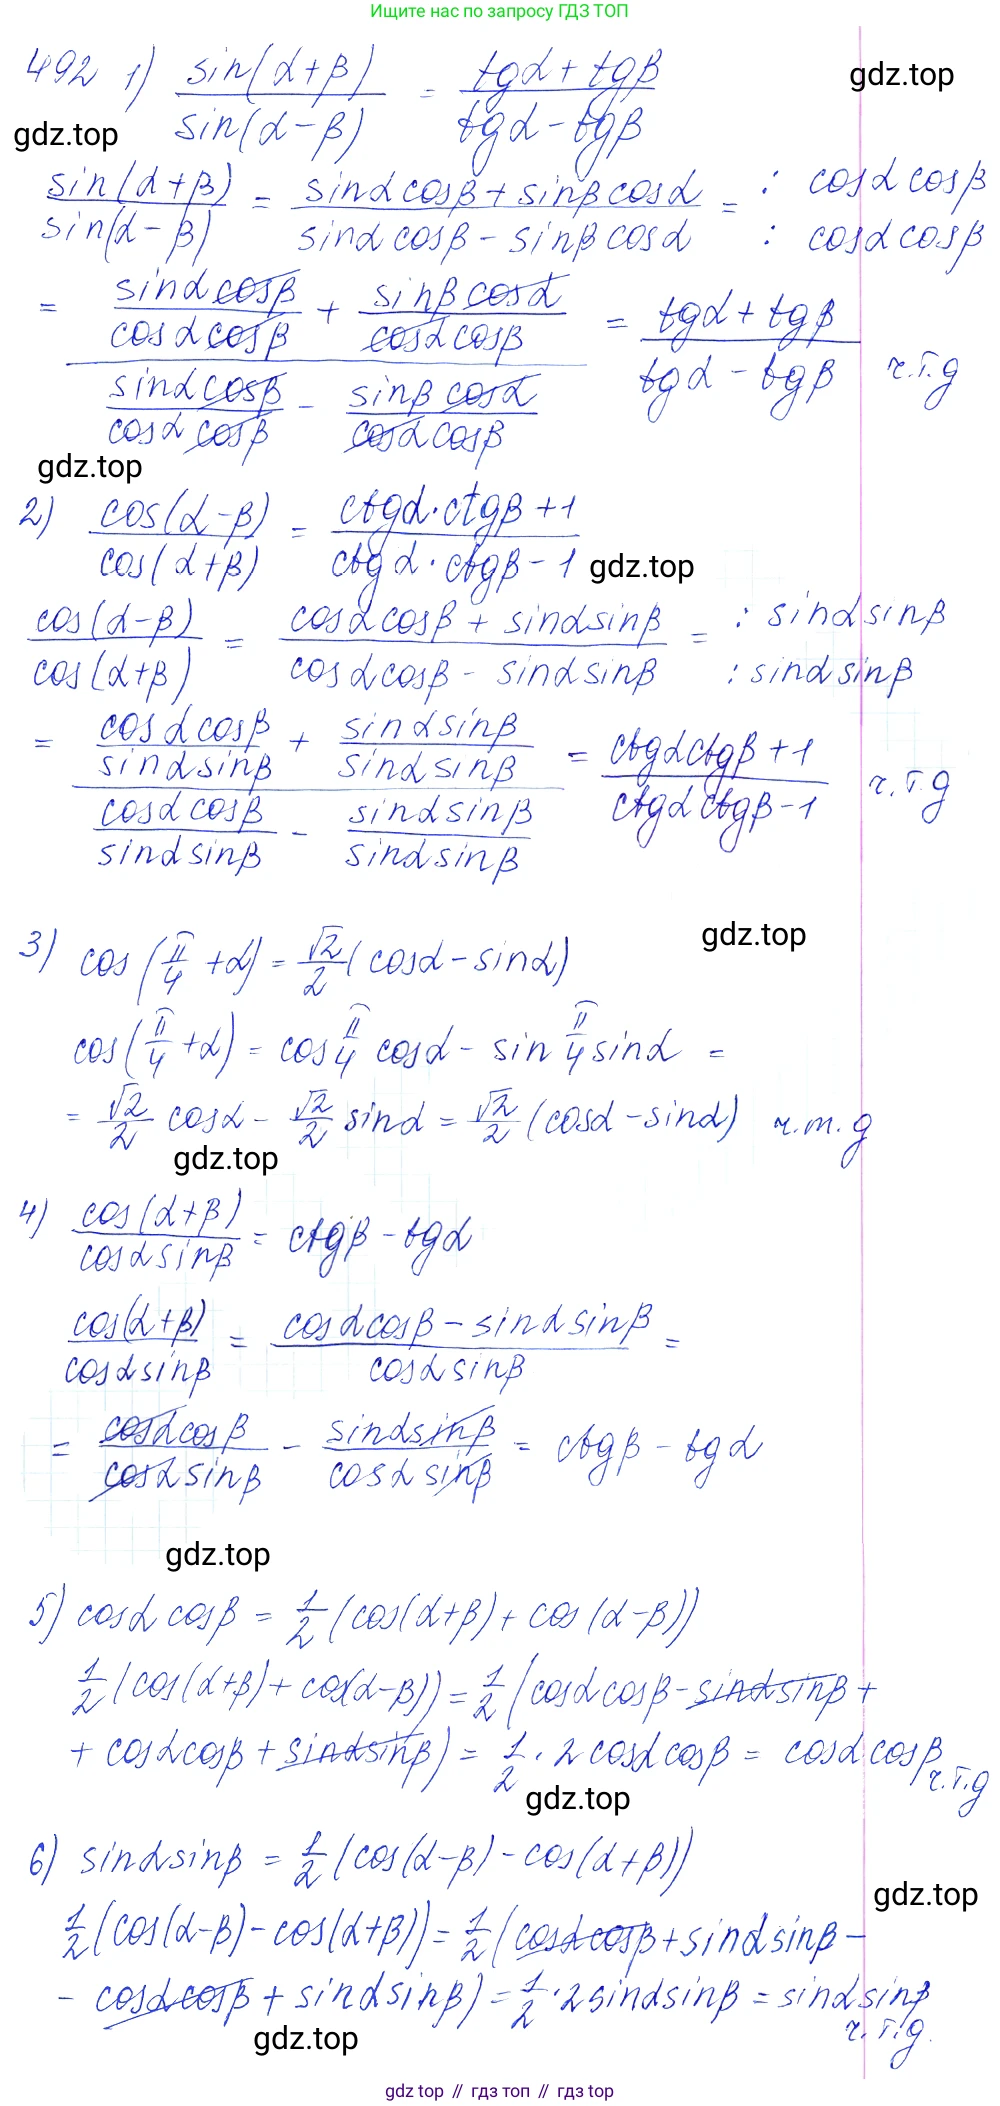 Ищите нас по запросу ГДЗ ТОП
492 1) sin(α+β)/sin(α−β) = (tgα + tgβ)/(tgα − tgβ)
gdz.top
gdz.top
sin(α+β)/sin(α−β) = (sinα cosβ + sinβ cosα)/(sinα cosβ − sinβ cosα) = : cosα cosβ : cosα cosβ
= (sinα cosβ/cosα cosβ + sinβ cosα/cosα cosβ)/(sinα cosβ/cosα cosβ − sinβ cosα/cosα cosβ) = (tgα + tgβ)/(tgα − tgβ) ч.т.д
gdz.top
2) cos(α−β)/cos(α+β) = (ctgα · ctgβ + 1)/(ctgα · ctgβ − 1)
gdz.top
cos(α−β)/cos(α+β) = (cosα cosβ + sinα sinβ)/(cosα cosβ − sinα sinβ) = : sinα sinβ : sinα sinβ
= (cosα cosβ/sinα sinβ + sinα sinβ/sinα sinβ)/(cosα cosβ/sinα sinβ − sinα sinβ/sinα sinβ) = (ctgα ctgβ + 1)/(ctgα ctgβ − 1) ч.т.д
gdz.top
3) cos(π/4 + α) = √2/2 (cosα − sinα)
cos(π/4 + α) = cos π/4 cosα − sin π/4 sinα =
= √2/2 cosα − √2/2 sinα = √2/2 (cosα − sinα) ч.т.д
gdz.top
4) cos(α+β)/cosα sinβ = ctgβ − tgα
cos(α+β)/cosα sinβ = (cosα cosβ − sinα sinβ)/cosα sinβ =
= cosα cosβ/cosα sinβ − sinα sinβ/cosα sinβ = ctgβ − tgα
gdz.top
5) cosα cosβ = 1/2 (cos(α+β) + cos(α−β))
1/2 (cos(α+β) + cos(α−β)) = 1/2 (cosα cosβ − sinα sinβ +
+ cosα cosβ + sinα sinβ) = 1/2 · 2 cosα cosβ = cosα cosβ
ч.т.д
gdz.top
6) sinα sinβ = 1/2 (cos(α−β) − cos(α+β))
gdz.top
1/2 (cos(α−β) − cos(α+β)) = 1/2 (cosα cosβ + sinα sinβ −
− cosα cosβ + sinα sinβ) = 1/2 · 2 sinα sinβ = sinα sinβ
ч.т.д.
gdz.top
gdz top // гдз топ // гдз top